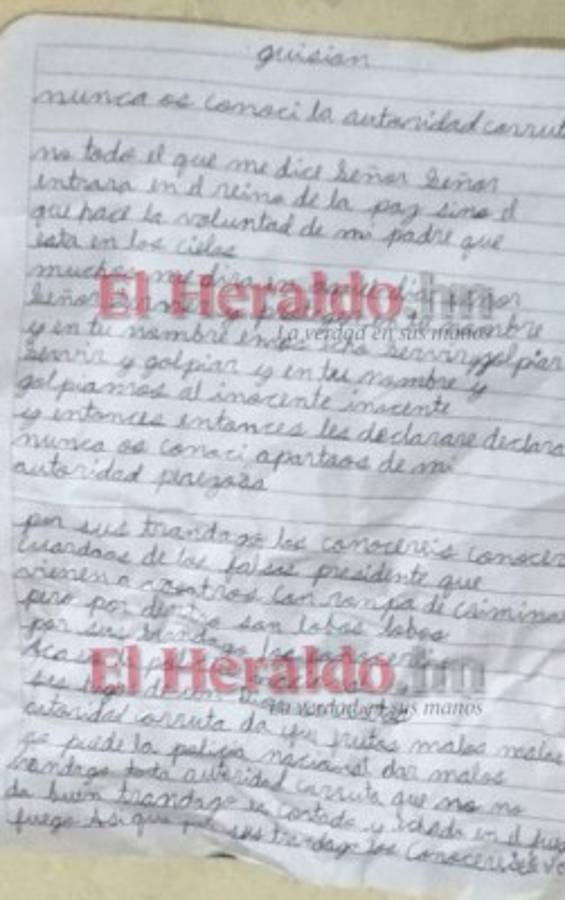 guision
nunca os conoci la autoridad corruta
no todo el que me dice señor señor
entrara en el reino de la paz sino el
que hace la voluntad de mi padre que
esta en los cielos
muchos me diran en dia señor
El Heraldo.hn
señor nombre
La verdad en sus manos
y en tu nombre servir y golpiar
servir y golpiar y en tu nombre y
golpiamos al inocente inocente
y entonces entonces les declarare declara
nunca os conoci apartaos de mi
autoridad perezosa
por sus trandago los conocereis conocer
cuardaos de los falsos presidente que
vienen a vosotros con rompa de crimina
pero por dentro son lobos lobos
por sus trandago los
El Heraldo.hn
La verdad en sus manos
autoridad corruta da que frutas malos malos
no puede la policia nacional dar malos
trandago toda autoridad corruta que no no
da buen trandago es contado y echado en el fueg
fuego asi que por sus trandago los conocereis